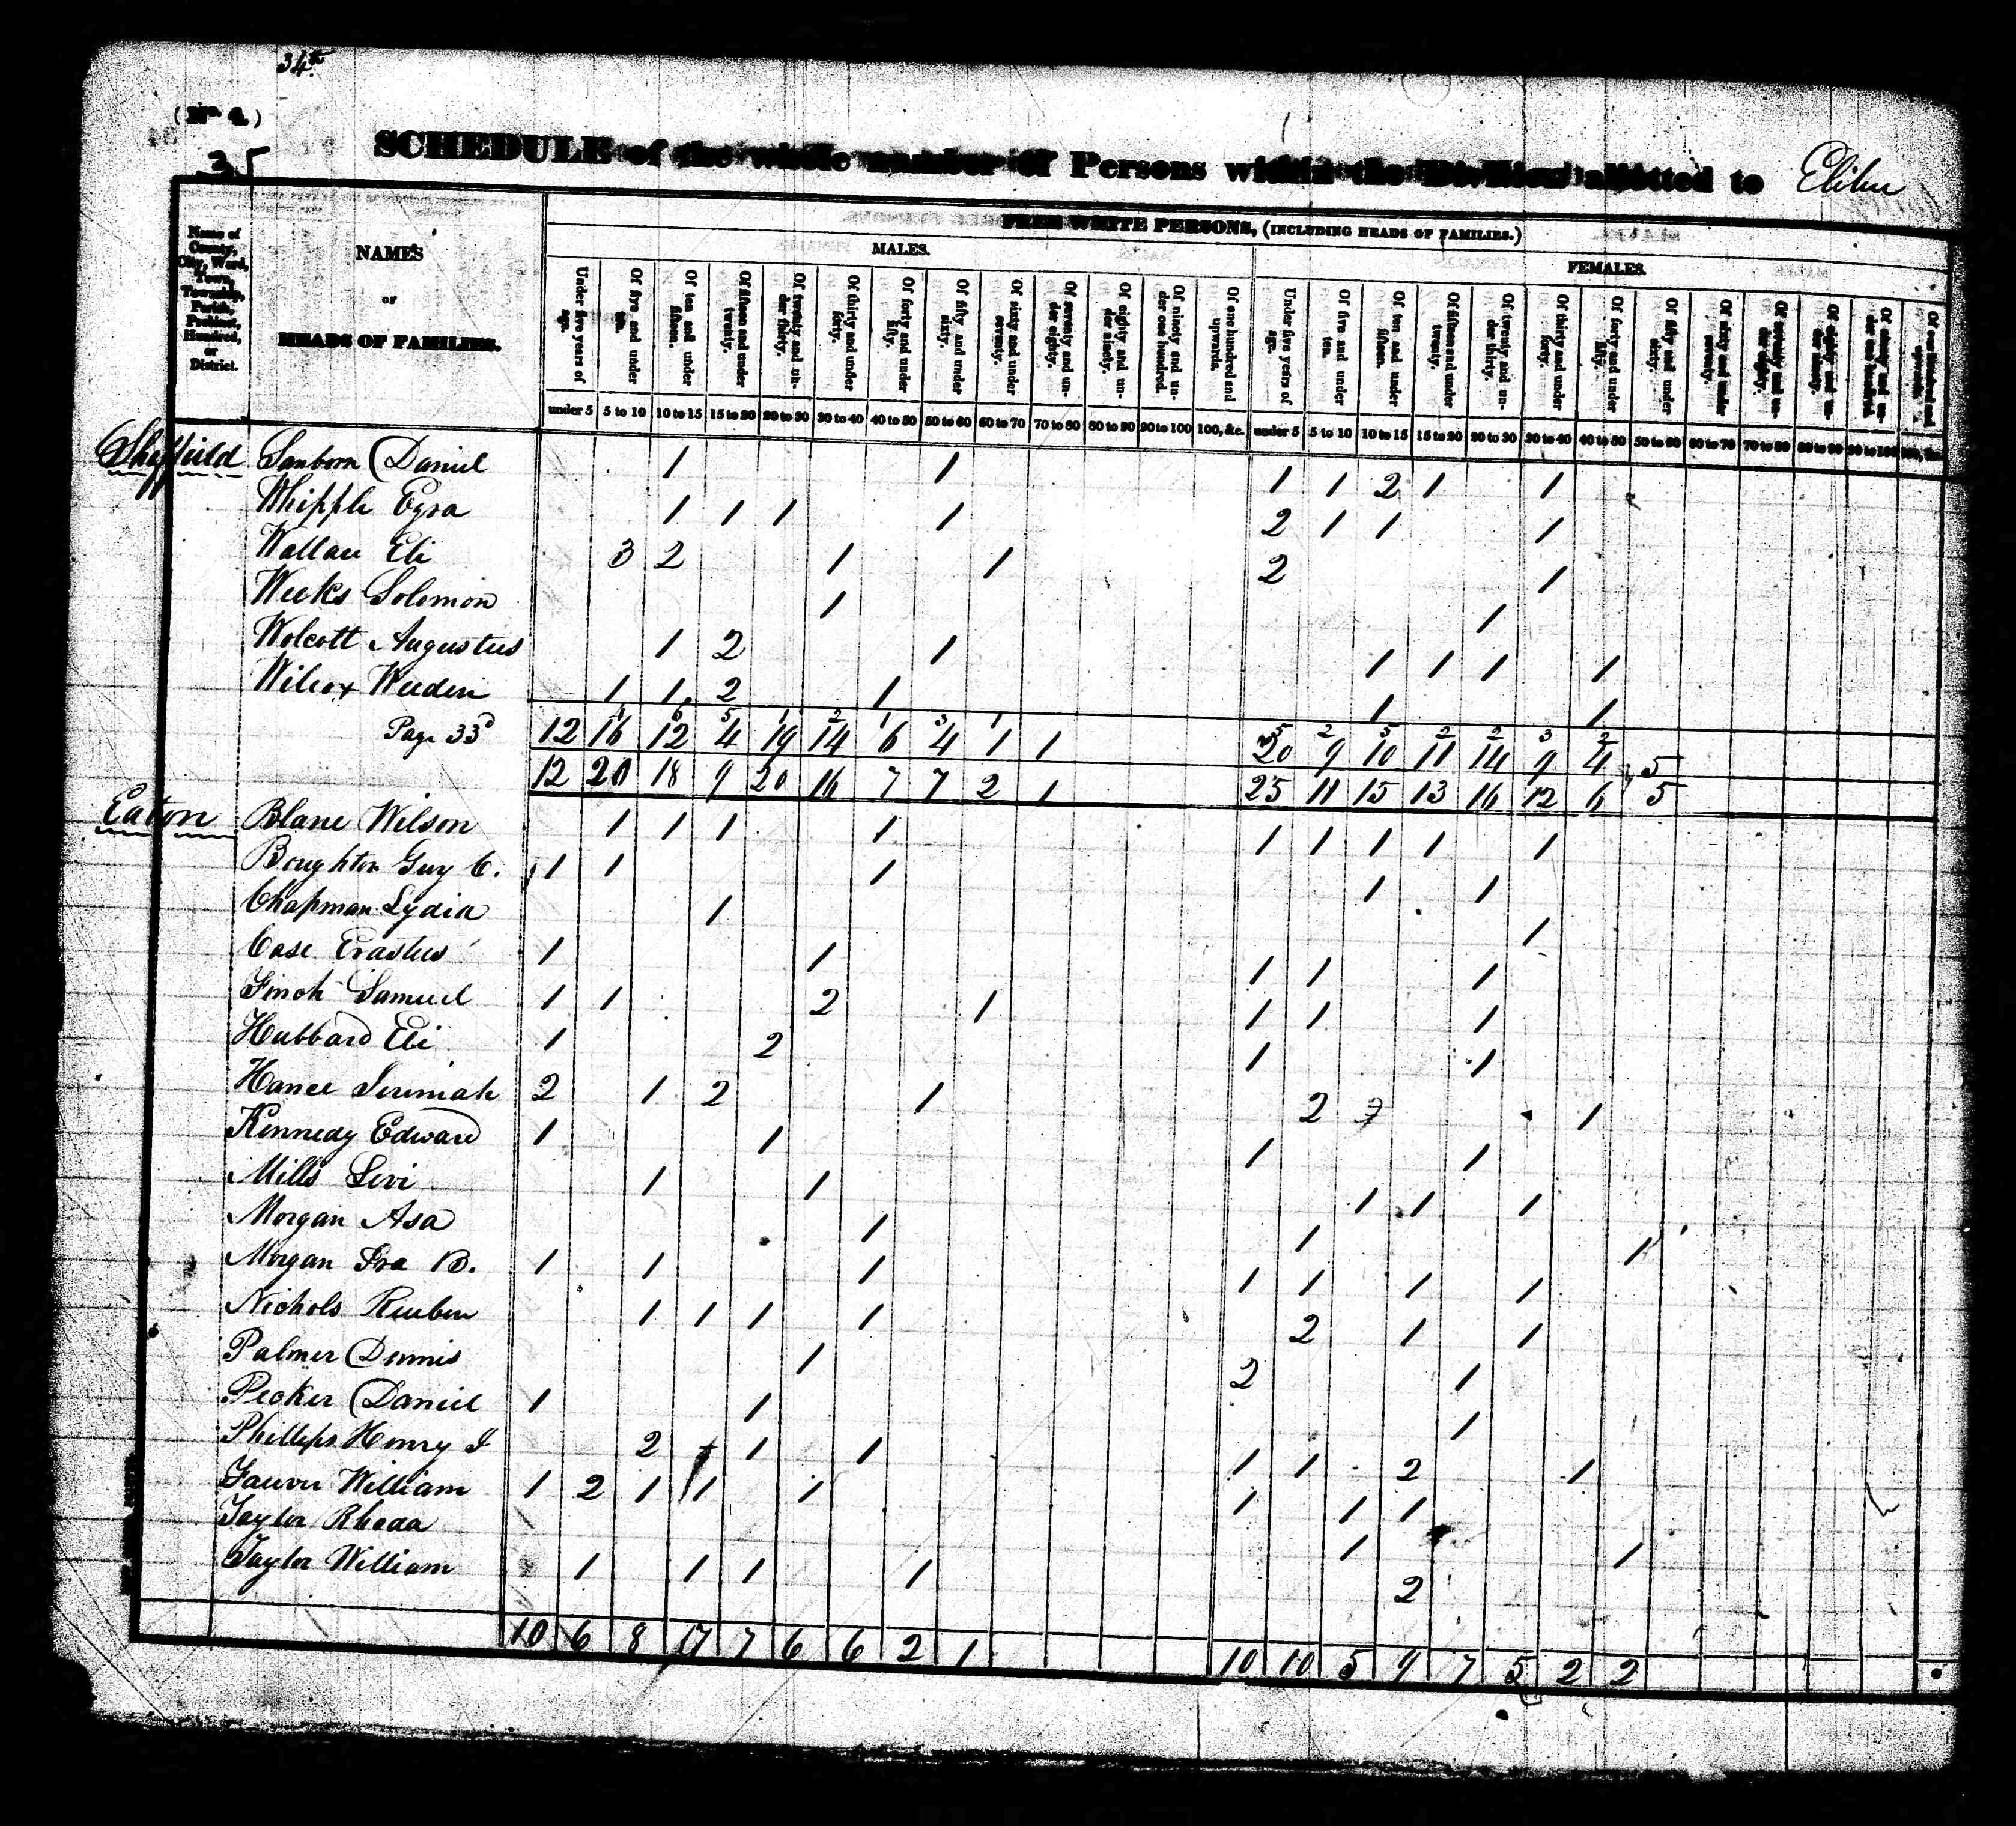 34th
(No. 4.)
35
SCHEDULE of the whole number of Persons within the Division allotted to Elihu
FREE WHITE PERSONS, (INCLUDING HEADS OF FAMILIES.)
MALES. FEMALES.
Name of County, City, Ward, Town, Township, Parish, Precinct, Hundred, or District.
NAMES
OF
HEADS OF FAMILIES.
Under five years of age. Of five and under ten. Of ten and under fifteen. Of fifteen and under twenty. Of twenty and under thirty. Of thirty and under forty. Of forty and under fifty. Of fifty and under sixty. Of sixty and under seventy. Of seventy and under eighty. Of eighty and under ninety. Of ninety and under one hundred. Of one hundred and upwards. Under five years of age. Of five and under ten. Of ten and under fifteen. Of fifteen and under twenty. Of twenty and under thirty. Of thirty and under forty. Of forty and under fifty. Of fifty and under sixty. Of sixty and under seventy. Of seventy and under eighty. Of eighty and under ninety. Of ninety and under one hundred. Of one hundred and upwards.
under 5 5 to 10 10 to 15 15 to 20 20 to 30 30 to 40 40 to 50 50 to 60 60 to 70 70 to 80 80 to 90 90 to 100 100, &c. under 5 5 to 10 10 to 15 15 to 20 20 to 30 30 to 40 40 to 50 50 to 60 60 to 70 70 to 80 80 to 90 90 to 100 100, &c.
Sheffield Sanborn Daniel 1 1 1 1 2 1 1
Whipple Ezra 1 1 1 1 2 1 1 1
Wallace Eli 3 2 1 1 2 1
Weeks Solomon 1 1
Wolcott Augustus 1 2 1 1 1 1 1
Wilcox Weeden 1 1 2 1 1 1
4 6 5 1 2 1 3 1 5 2 5 2 2 3 2
Page 33d 12 16 12 4 19 14 6 4 1 1 20 9 10 11 14 9 4 5
12 20 18 9 20 16 7 7 2 1 25 11 15 13 16 12 6 5
Eaton Blane Wilson 1 1 1 1 1 1 1 1 1
Boughton Guy C. 1 1 1 1 1
Chapman Lydia 1 1
Case Erastus 1 1 1 1 1
Finch Samuel 1 1 2 1 1 1 1
Hubbard Eli 1 2 1 1
Hance Jeremiah 2 1 2 1 2 1
Kennedy Edward 1 1 1 1
Mills Levi 1 1 1 1 1
Morgan Asa 1 1 1
Morgan Ira B. 1 1 1 1 1 1 1
Nichols Reuben 1 1 1 1 2 1 1
Palmer Dennis 1 2 1
Pecker Daniel 1 1 1
Phillips Henry J 2 1 1 1 1 2 1
Fauver William 1 2 1 1 1 1 1 1
Taylor Rhoda 1 1
Taylor William 1 1 1 1 2
10 6 8 7 7 6 6 2 1 10 10 5 9 7 5 2 2